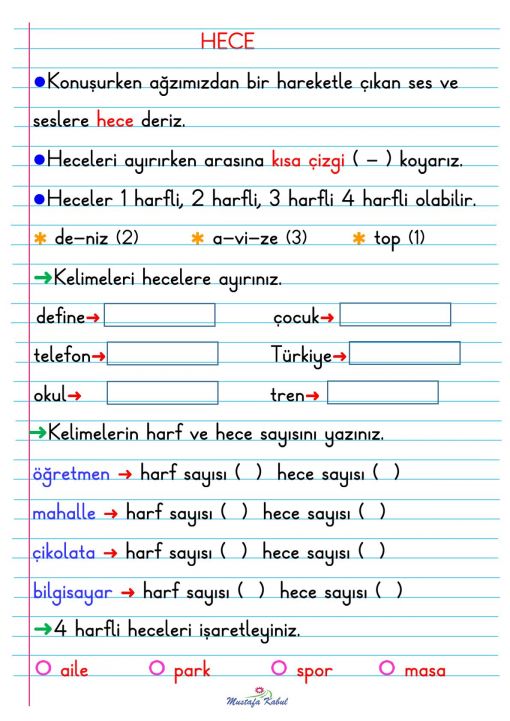 HECE
●Konuşurken ağzımızdan bir hareketle çıkan ses ve
seslere hece deriz.
●Heceleri ayırırken arasına kısa çizgi ( – ) koyarız.
●Heceler 1 harfli, 2 harfli, 3 harfli 4 harfli olabilir.
✱ de–niz (2) ✱ a–vi–ze (3) ✱ top (1)
➜Kelimeleri hecelere ayırınız.
define➜ çocuk➜
telefon➜ Türkiye➜
okul➜ tren➜
➜Kelimelerin harf ve hece sayısını yazınız.
öğretmen ➜ harf sayısı ( ) hece sayısı ( )
mahalle ➜ harf sayısı ( ) hece sayısı ( )
çikolata ➜ harf sayısı ( ) hece sayısı ( )
bilgisayar ➜ harf sayısı ( ) hece sayısı ( )
➜4 harfli heceleri işaretleyiniz.
○ aile ○ park ○ spor ○ masa
Mustafa Kabul